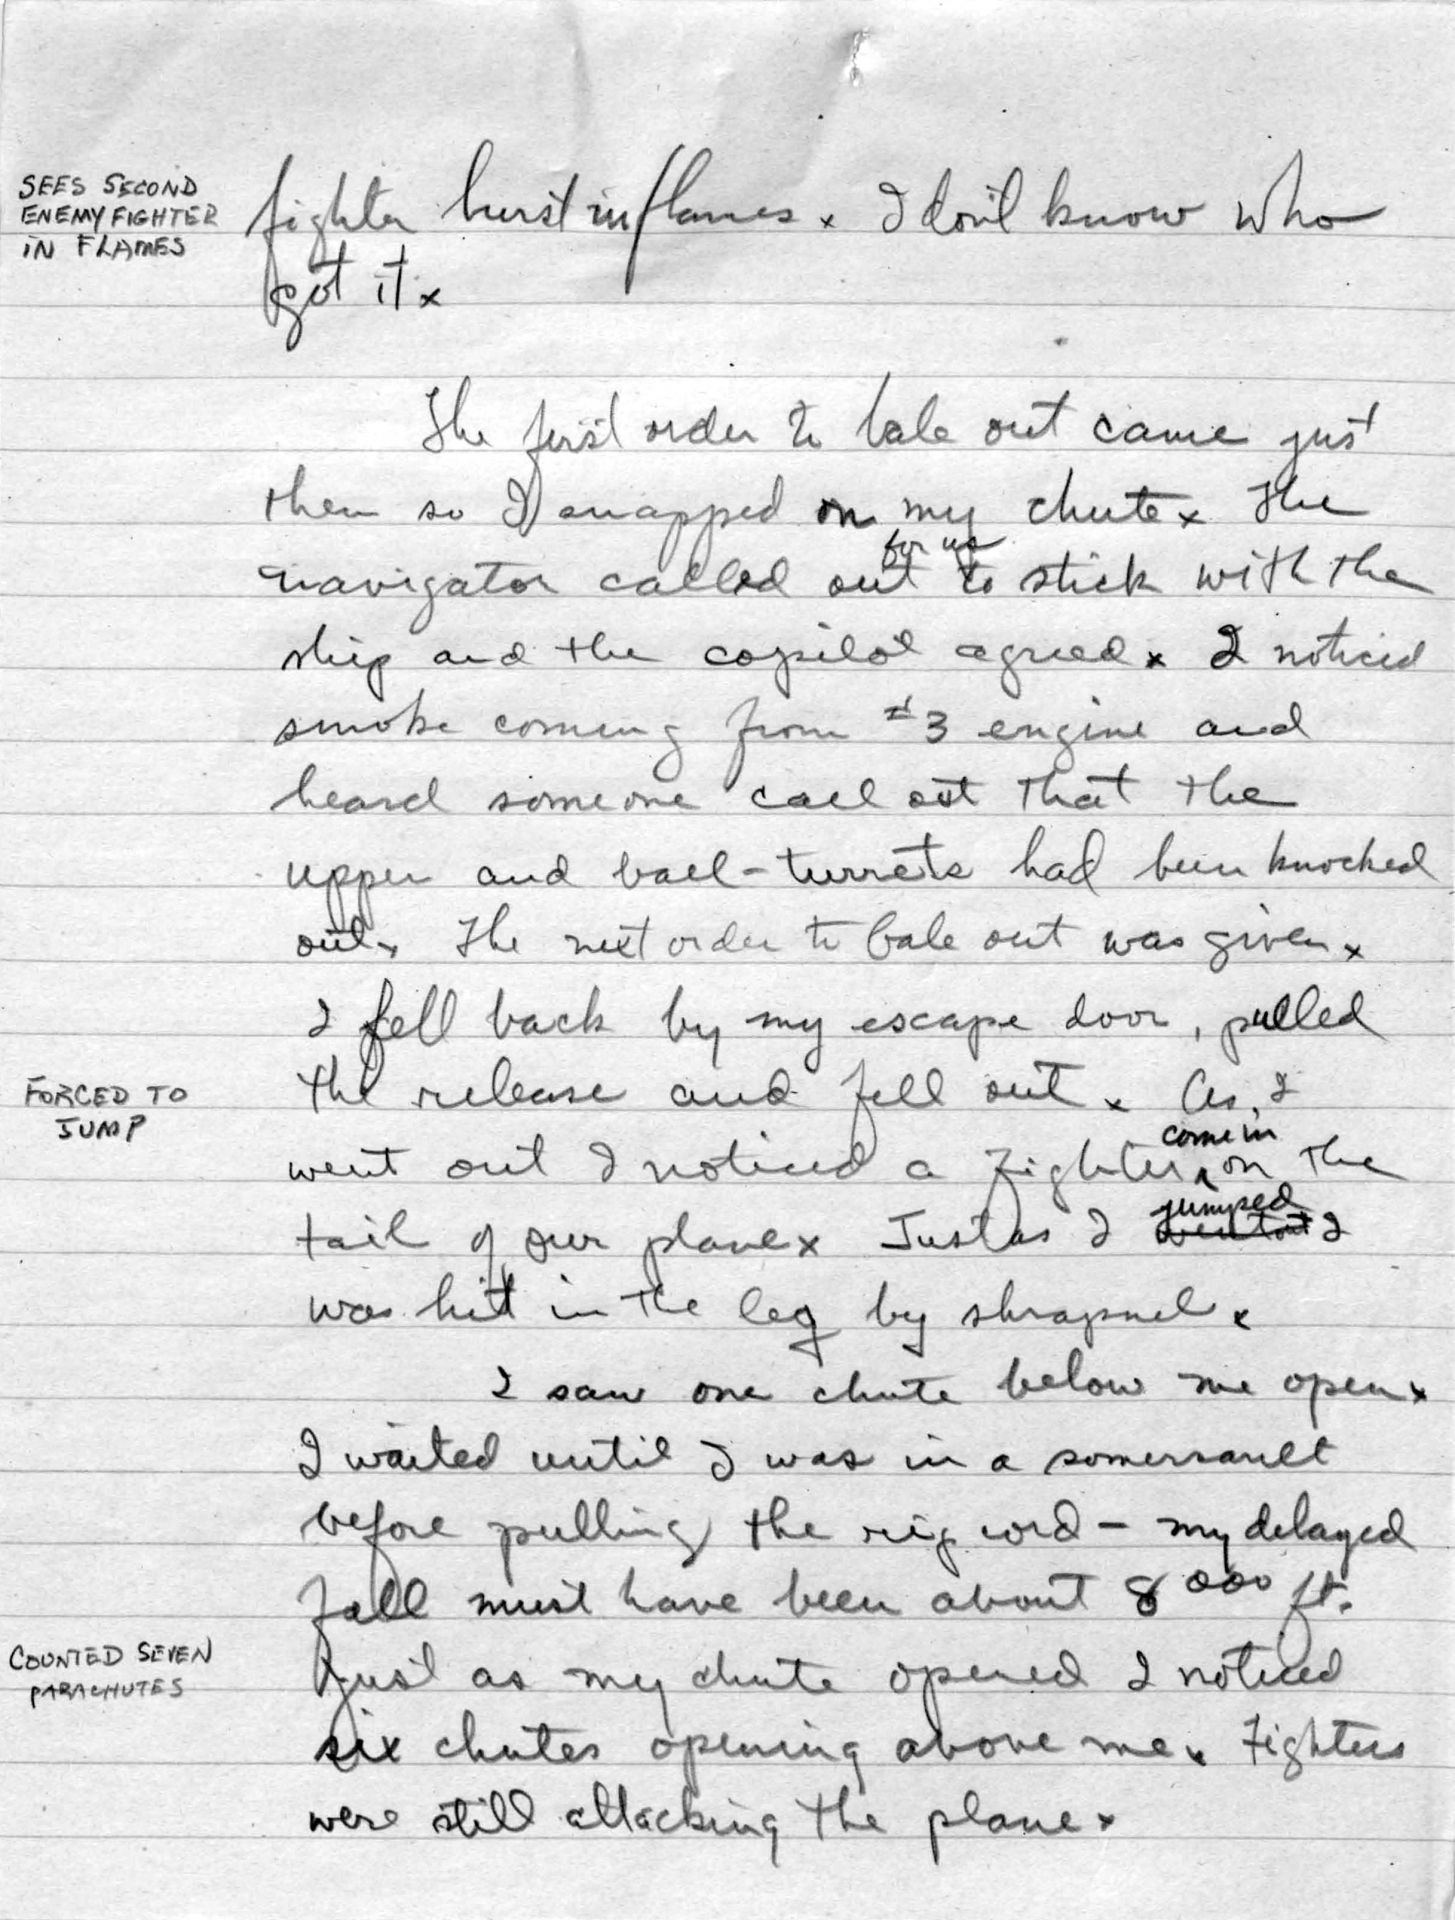 SEES SECOND
ENEMY FIGHTER
IN FLAMES
fighter burst in flames x I don't know who
got it x
The first order to bale out came just
then so I snapped on my chute x The
for us
navigator called out to stick with the
ship and the copilot agreed x I noticed
smoke coming from #3 engine and
heard someone call out that the
upper and ball-turrets had been knocked
out x The next order to bale out was given x
I fell back by my escape door, pulled
FORCED TO
JUMP
the release and fell out x As I
come in
went out I noticed a fighter ^ on the
jumped
tail of our plane x Just as I went out I
was hit in the leg by shrapnel x
I saw one chute below me open x
I waited until I was in a somersault
before pulling the rip cord - my delayed
fall must have been about 8000 ft.
COUNTED SEVEN
PARACHUTES
Just as my chute opened I noticed
six chutes opening above me x Fighters
were still attacking the plane x